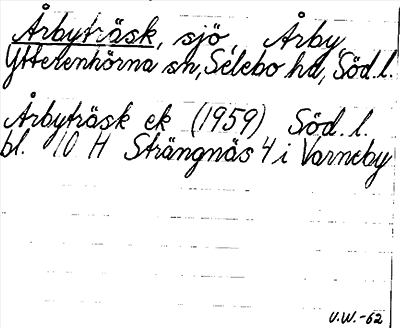 Årbyträsk, sjö, Årby,
Ytterenhörna sn, Selebo hd, Söd. l.
Årbyträsk ek (1959) Söd. l.
bl. 10 H Strängnäs 4 i Varneby
V.W.-62